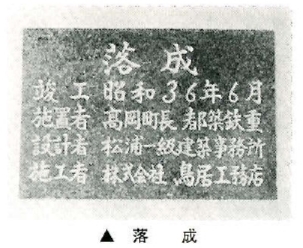 落成
竣工 昭和36年6月
施置者 高岡町長 都築鉄重
設計者 松浦一級建築事務所
施工者 株式会社 鳥居工務店
▲ 落成